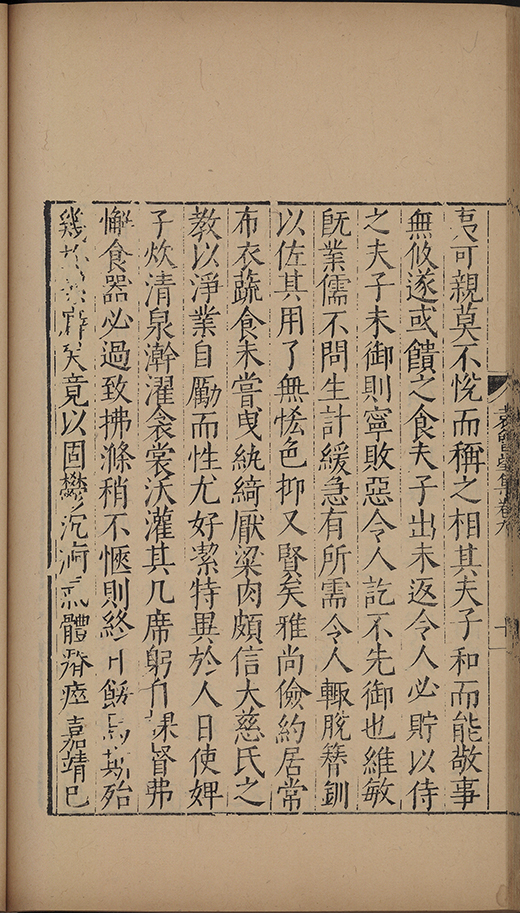 爽可親莫不悅而稱之相其夫子和而能敬事
無攸遂或饋之食夫子出未返令人必貯以侍
之夫子未御則寧敗惡令人訖不先御也維敏
旣業儒不問生計緩急有所需令人輙脫簪釧
以佐其用了無恡色抑又賢矣雅尚儉約居常
布衣蔬食未嘗曳紈綺厭粱肉頗信大慈氏之
教以淨業自勵而性尤好潔特異於人日使婢
子炊清泉澣濯衾裳沃灌其几席躬自課督弗
懈食器必過致拂滌稍不愜則終日餙焉斯殆
幾於癖矣竟以固鬱沉痾氣體瘠瘂嘉靖巳
集卷九
十